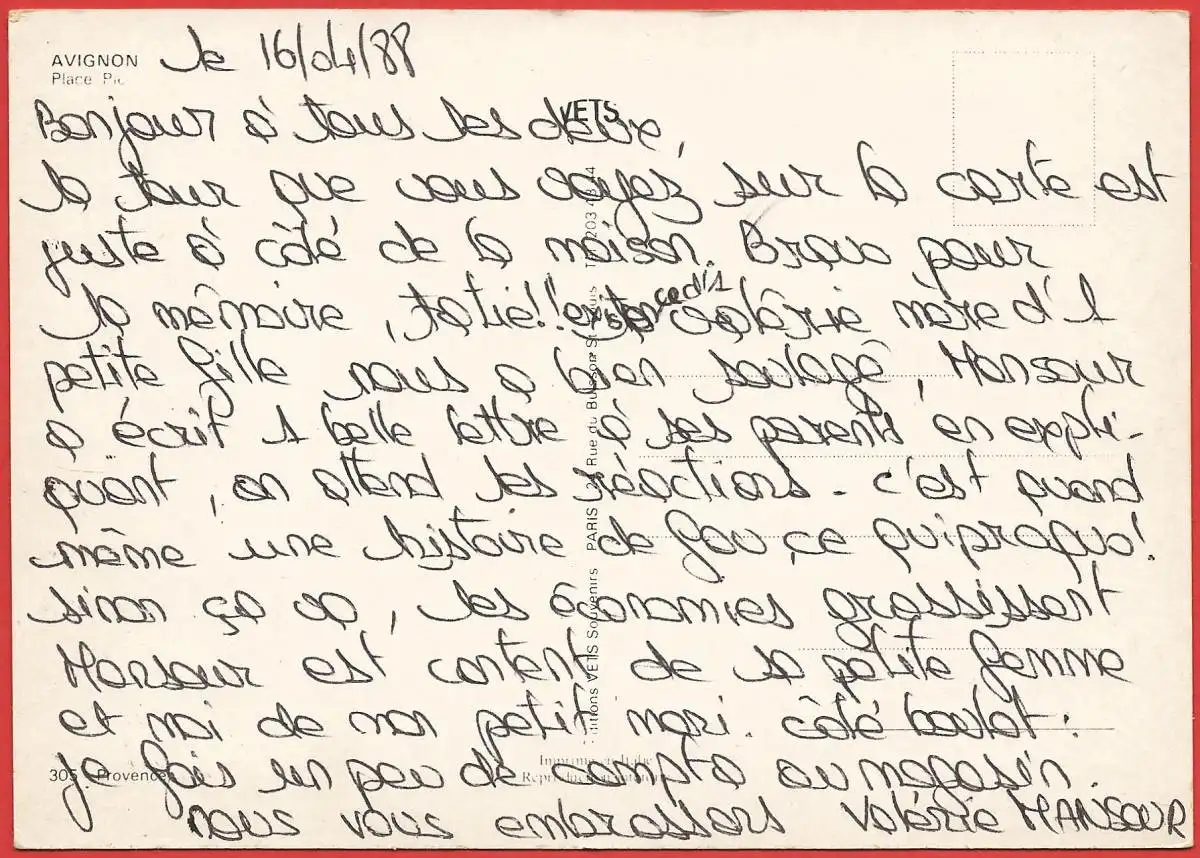 AVIGNON
Place Pie
le 16/04/88
Bonjour à tous les deux,
la tour que vous voyez sur la carte est
juste à côté de la maison. Bravo pour
la mémoire, tatie!! cad'1 Valérie mère d'1
petite fille nous a bien soulagé, Mansour
a écrit 1 belle lettre à ses parents en expli-
quant, on attend les réactions - c'est quand
même une histoire de fou ce quiproquo!
sinon ça va, les économies grossissent
Mansour est content de sa petite femme
et moi de mon petit mari. côté boulot:
je fais un peu de compta au magasin.
nous vous embrassons Valérie MANSOUR
VETS
Editions VETS Souvenirs PARIS 24 Rue du Buisson St Louis
305 Provence
Imprimé en Italie
Reproduction interdite